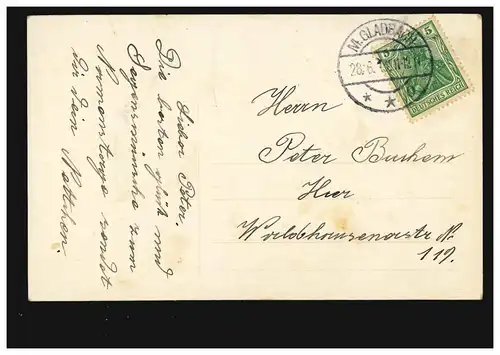 Lieber Peter.
Die besten Glück und
Segenswünsche zum
Namenstage sendet
dir dein Nettchen.
M. GLADBACH
28.6.
5
DEUTSCHES REICH
Herrn
Peter Buchem
Hier
Waldhausenerstr. Nr.
119.